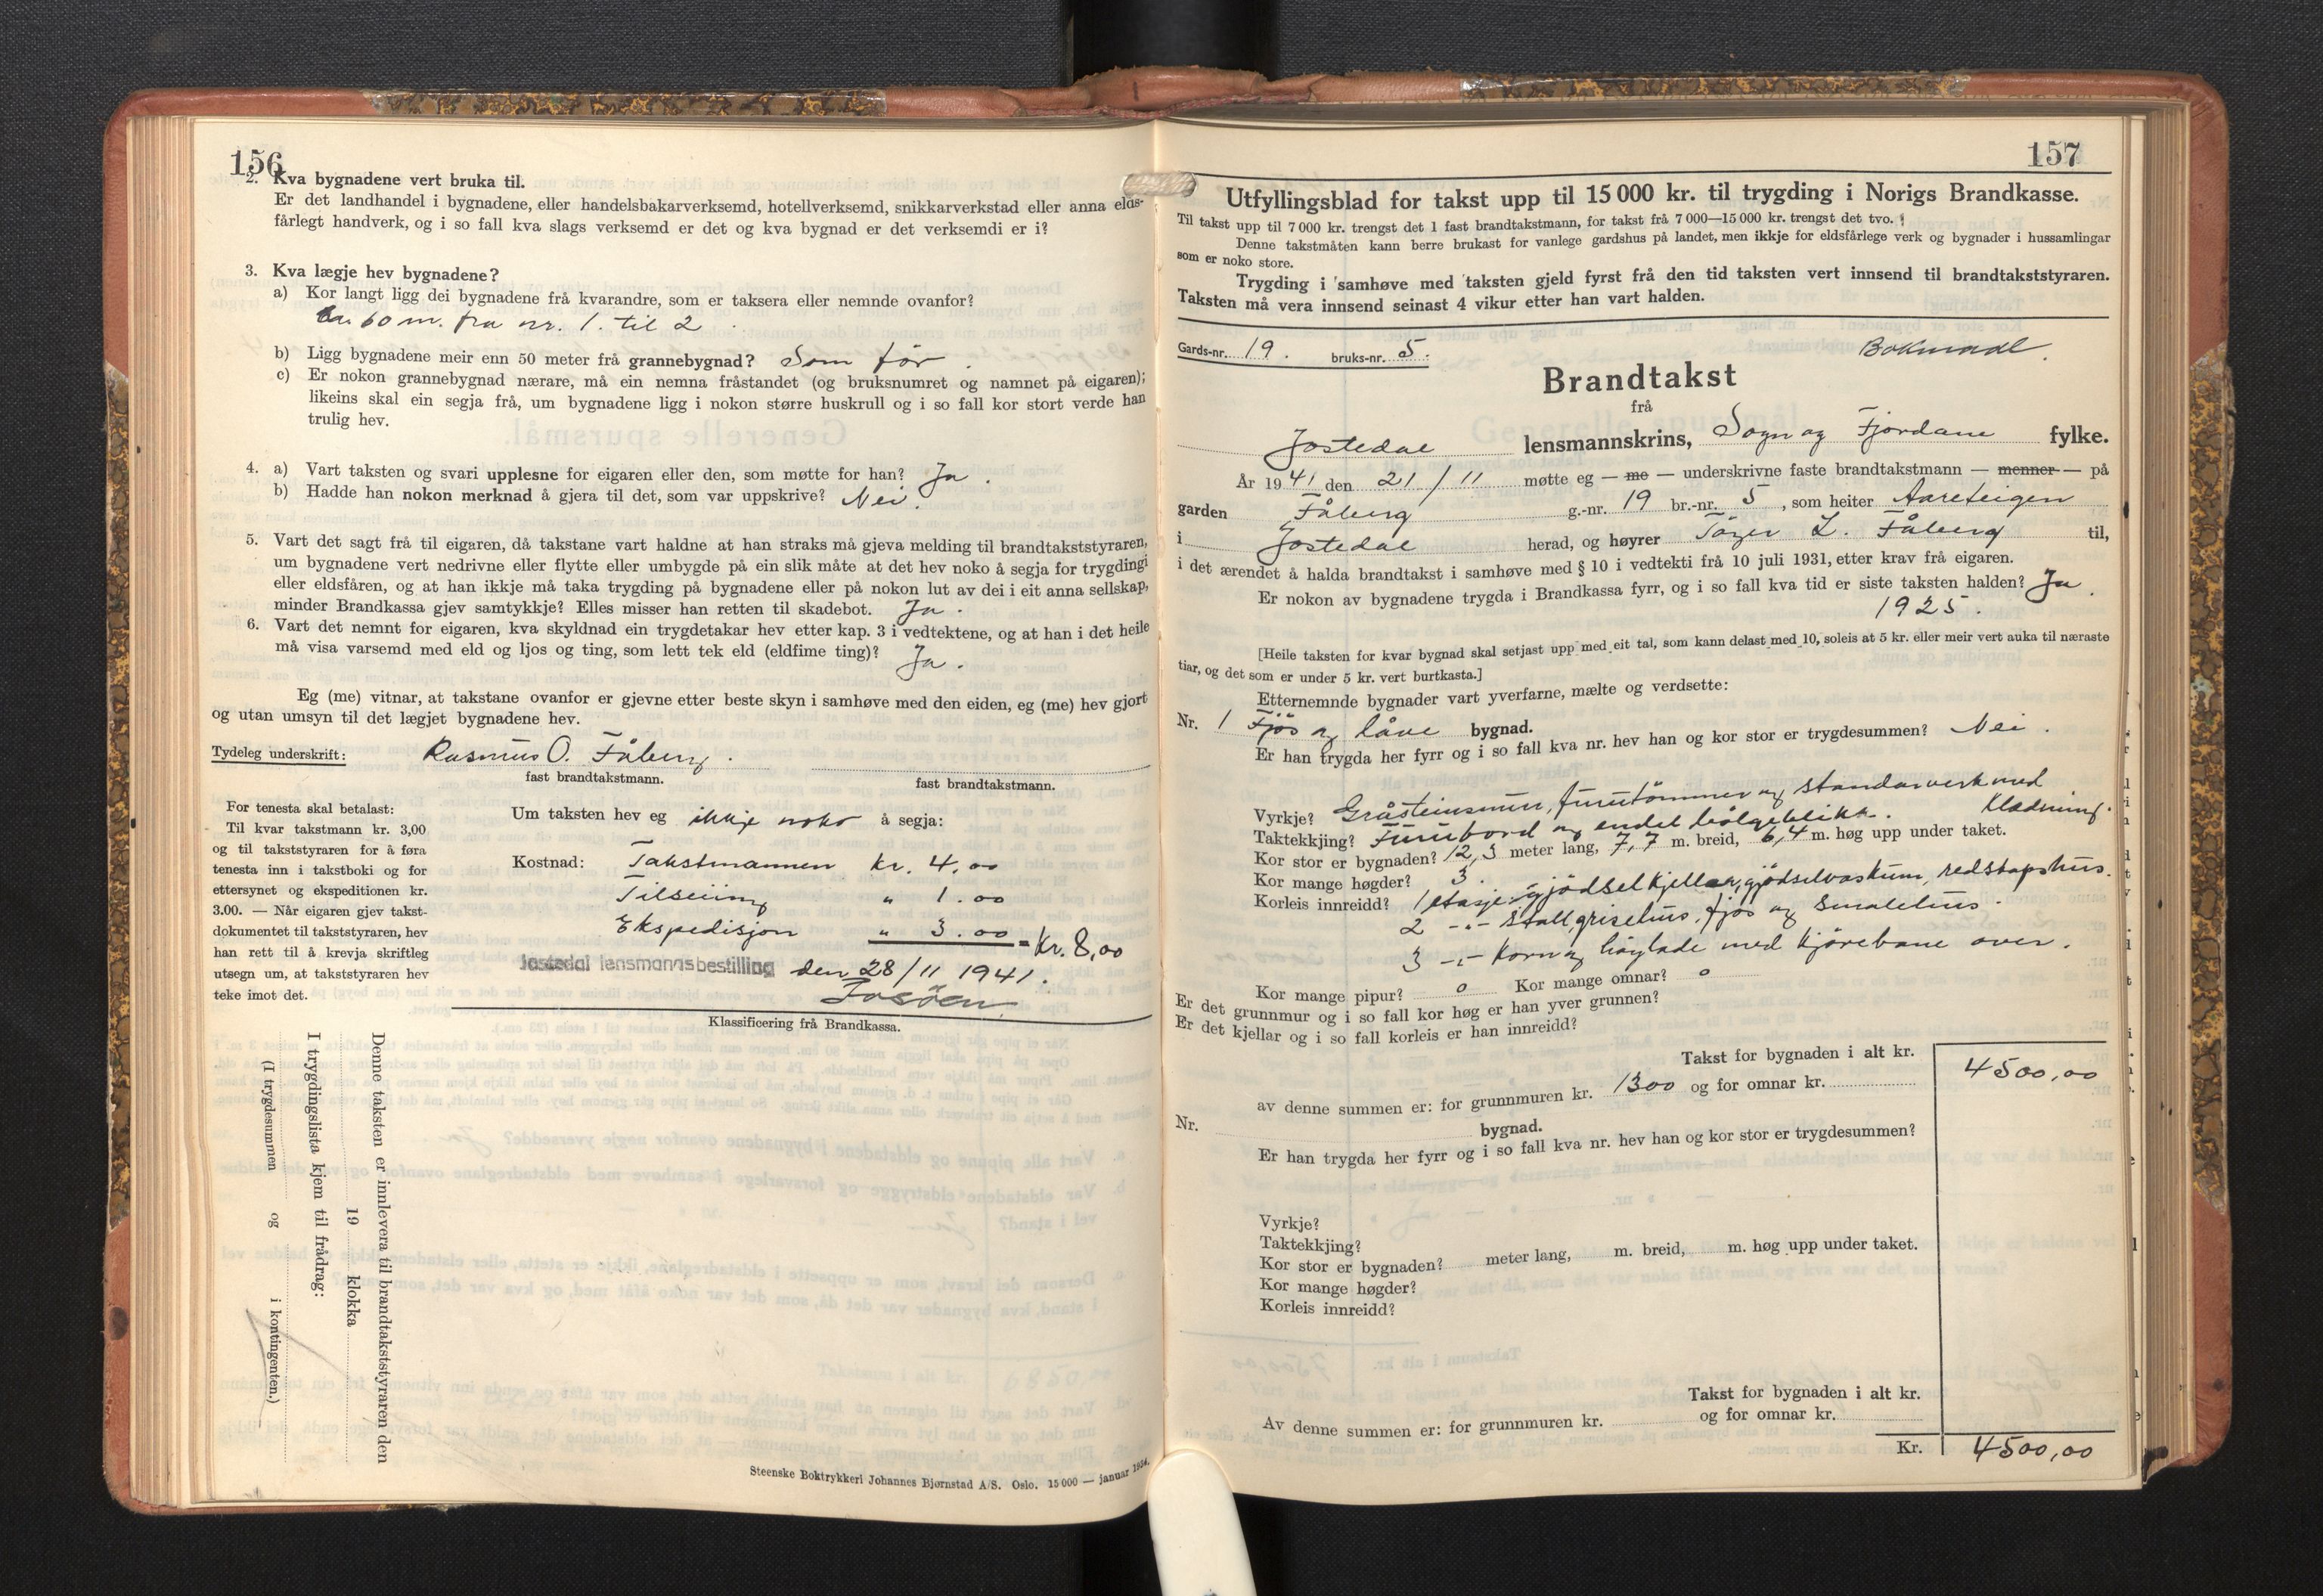 156
2. Kva bygnadene vert bruka til.
Er det landhandel i bygnadene, eller handelsbakarverksemd, hotellverksemd, snikkarverkstad eller anna elds-
fårlegt handverk, og i so fall kva slags verksemd er det og kva bygnad er det verksemdi er i?
3. Kva lægje hev bygnadene?
a) Kor langt ligg dei bygnadene frå kvarandre, som er taksera eller nemnde ovanfor?
ca. 60 m. fra nr. 1. til 2.
b) Ligg bygnadene meir enn 50 meter frå grannebygnad? Som før.
c) Er nokon grannebygnad nærare, må ein nemna fråstandet (og bruksnumret og namnet på eigaren);
likeins skal ein segja frå, um bygnadene ligg i nokon større huskrull og i so fall kor stort verde han
trulig hev.
4. a) Vart taksten og svari upplesne for eigaren eller den, som møtte for han? Ja.
b) Hadde han nokon merknad å gjera til det, som var uppskrive? Nei.
5. Vart det sagt frå til eigaren, då takstane vart haldne at han straks må gjeva melding til brandtakststyraren,
um bygnadene vert nedrivne eller flytte eller umbygde på ein slik måte at det hev noko å segja for trygdingi
eller eldsfåren, og at han ikkje må taka trygding på bygnadene eller på nokon lut av dei i eit anna sellskap,
minder Brandkassa gjev samtykkje? Elles misser han retten til skadebot. Ja.
6. Vart det nemnt for eigaren, kva skyldnad ein trygdetakar hev etter kap. 3 i vedtektene, og at han i det heile
må visa varsemd med eld og ljos og ting, som lett tek eld (eldfime ting)? Ja.
Eg (me) vitnar, at takstane ovanfor er gjevne etter beste skyn i samhøve med den eiden, eg (me) hev gjort
og utan umsyn til det lægjet bygnadene hev.
Tydeleg underskrift: Rasmus O. Fåberg.
fast brandtakstmann. fast brandtakstmann.
For tenesta skal betalast:
Til kvar takstmann kr. 3,00
og til takststyraren for å føra
tenesta inn i takstboki og for
ettersynet og ekspeditionen kr.
3.00. — Når eigaren gjev takst-
dokumentet til takststyraren, hev
han rett til å krevja skriftleg
utsegn um, at takststyraren hev
teke imot det.
Um taksten hev eg ikkje noko å segja:
Kostnad: Takstmannen kr. 4,00
Tilseiing " 1.00
Ekspedisjon " 3.00 = Kr. 8,00
Jostedal lensmannsbestilling den 28/11 1941.
Klassificering frå Brandkassa.
Denne taksten er innlevera til brandtakststyraren den
19 klokka
I trygdingslista kjem til frådrag:
(I trygdesummen og i kontingenten.)
Steenske Boktrykkeri Johannes Bjørnstad A/S. Oslo. 15 000 — januar 1934.
157
Utfyllingsblad for takst upp til 15 000 kr. til trygding i Norigs Brandkasse.
Til takst upp til 7 000 kr. trengst det 1 fast brandtakstmann, for takst frå 7 000—15 000 kr. trengst det tvo.
Denne takstmåten kann berre brukast for vanlege gardshus på landet, men ikkje for eldsfårlege verk og bygnader i hussamlingar
som er noko store.
Trygding i samhøve med taksten gjeld fyrst frå den tid taksten vert innsend til brandtakststyraren.
Taksten må vera innsend seinast 4 vikur etter han vart halden.
Gards-nr. 19. bruks-nr. 5. Bokmaal.
Brandtakst
frå
Jostedal lensmannskrins, Sogn og Fjordane fylke.
År 1941 den 21/11 møtte eg — me — underskrivne faste brandtakstmann — menner — på
garden Fåberg g.-nr. 19 br.-nr. 5, som heiter Aareteigen
i Jostedal herad, og høyrer Tøger L. Fåberg til,
i det ærendet å halda brandtakst i samhøve med § 10 i vedtekti frå 10 juli 1931, etter krav frå eigaren.
Er nokon av bygnadene trygda i Brandkassa fyrr, og i so fall kva tid er siste taksten halden? Ja.
1925.
[Heile taksten for kvar bygnad skal setjast upp med eit tal, som kann delast med 10, soleis at 5 kr. eller meir vert auka til næraste
tiar, og det som er under 5 kr. vert burtkasta.]
Etternemnde bygnader vart yverfarne, mælte og verdsette:
Nr. 1 Fjøs og låve bygnad.
Er han trygda her fyrr og i so fall kva nr. hev han og kor stor er trygdesummen? Nei.
Vyrkje? Gråsteinsmur, furutømmer og standarverk med
klædning.
Taktekkjing? Furubord og endel bølgeblikk.
Kor stor er bygnaden? 12,3 meter lang, 7,7 m. breid, 6,4 m. høg upp under taket.
Kor mange høgder? 3.
Korleis innreidd? 1 etasje gjødselkjellar, gjødselvaskum, redskapshus.
2 -"- Stall, grisehus, fjøs og smalehus.
3 -"- Korn og høylade med kjørebane over.
Kor mange pipur? 0 Kor mange omnar? 0
Er det grunnmur og i so fall kor høg er han yver grunnen?
Er det kjellar og i so fall korleis er han innreidd?
Takst for bygnaden i alt kr. 4500,00
av denne summen er: for grunnmuren kr. 1300 og for omnar kr.
Nr. bygnad.
Er han trygda her fyrr og i so fall kva nr. hev han og kor stor er trygdesummen?
Vyrkje?
Taktekkjing?
Kor stor er bygnaden? meter lang, m. breid, m. høg upp under taket.
Kor mange høgder?
Korleis innreidd?
Takst for bygnaden i alt kr.
Av denne summen er: for grunnmuren kr. og for omnar kr.
Kr. 4500,00